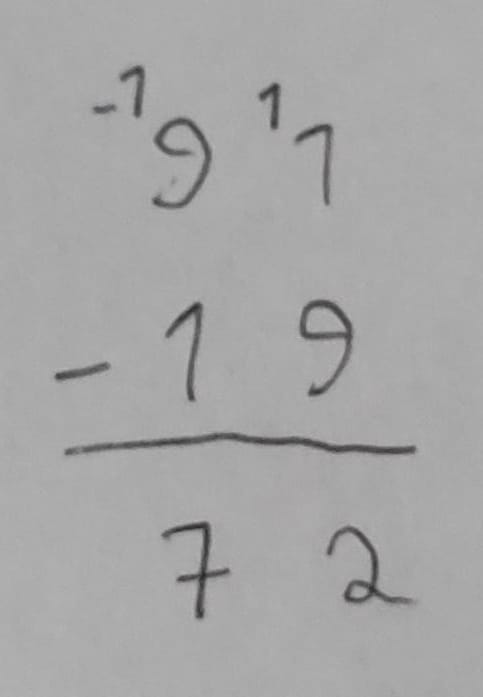 -1 9 1 1
- 1 9
7 2